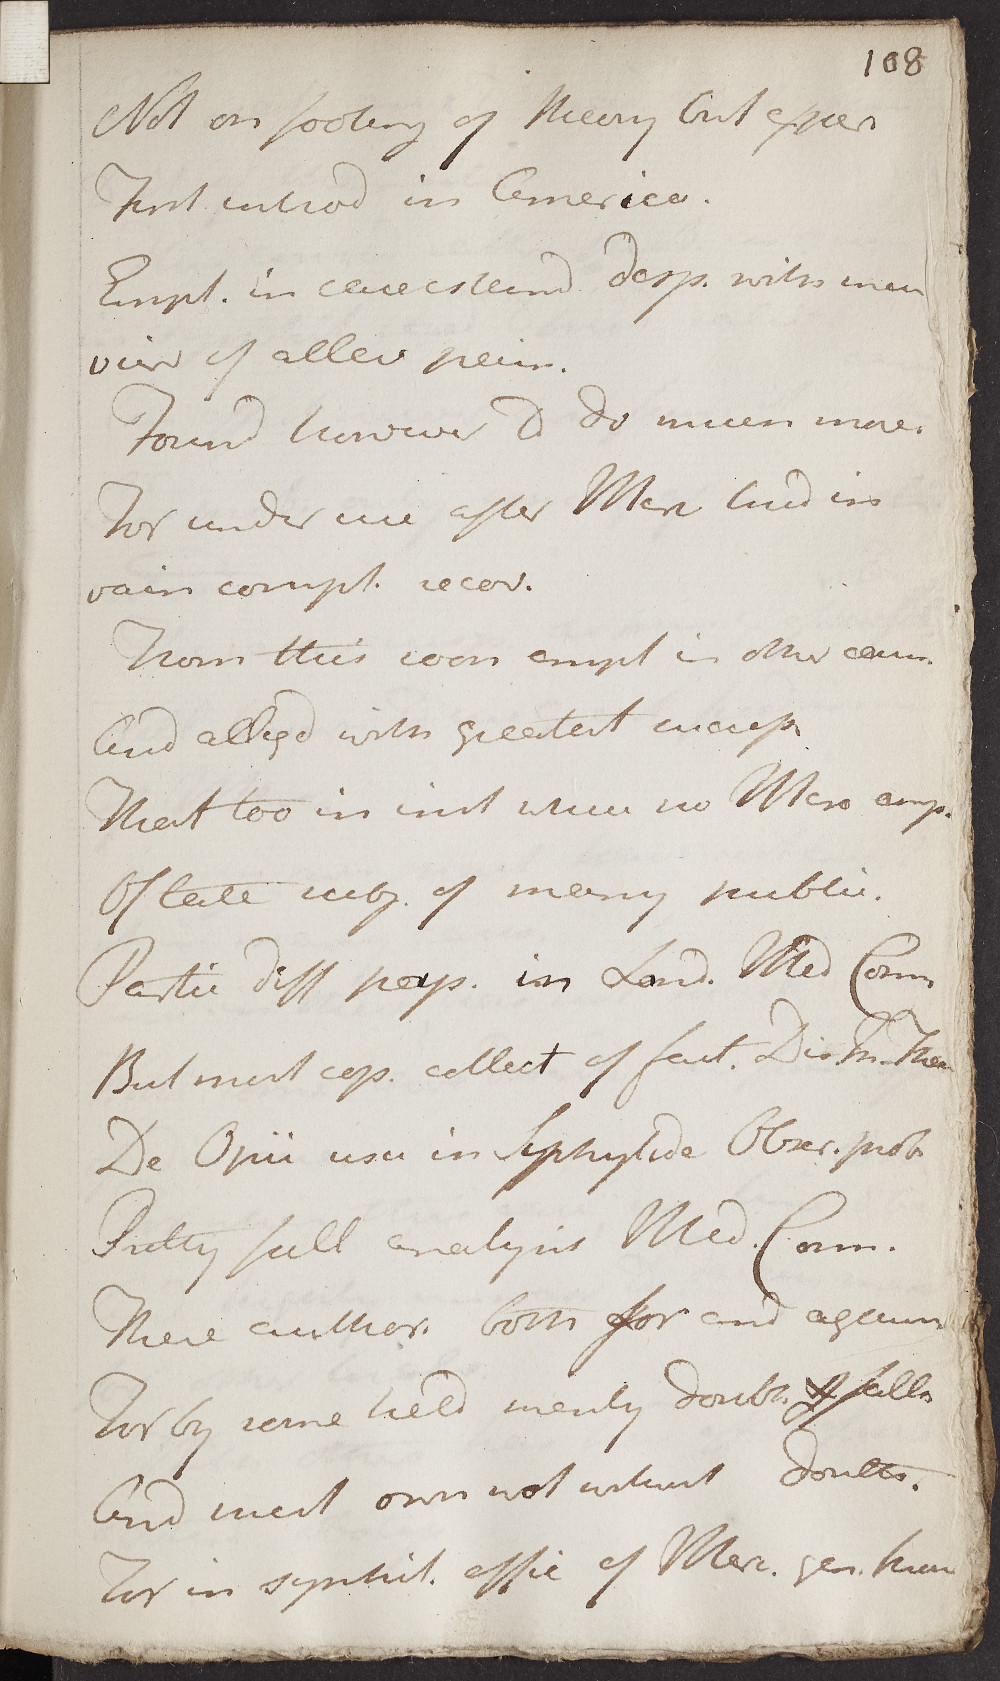 108
Not on footing of theory but exper
First introd in America.
Empl. in case esteemd desp. with mere
view of allev pain.
Found however to do much more.
For under use after Merc had in
vain compl. recov.
From this soon empl in other cases.
And alleged with greatest success
That too in inst where no Merc emp.
Of late subj. of many public.
Partic diff pap. in Lond. Med Com
But most cop. collect of fact. Dis. In. Thes
De Opii usu in Syphylide Obser. prob
Pretty full analysis Med. Com.
There author. both for and against
For by some held merely doubt. & falla
And must own not without doubts.
For in syphil. effic of Merc. gen. known